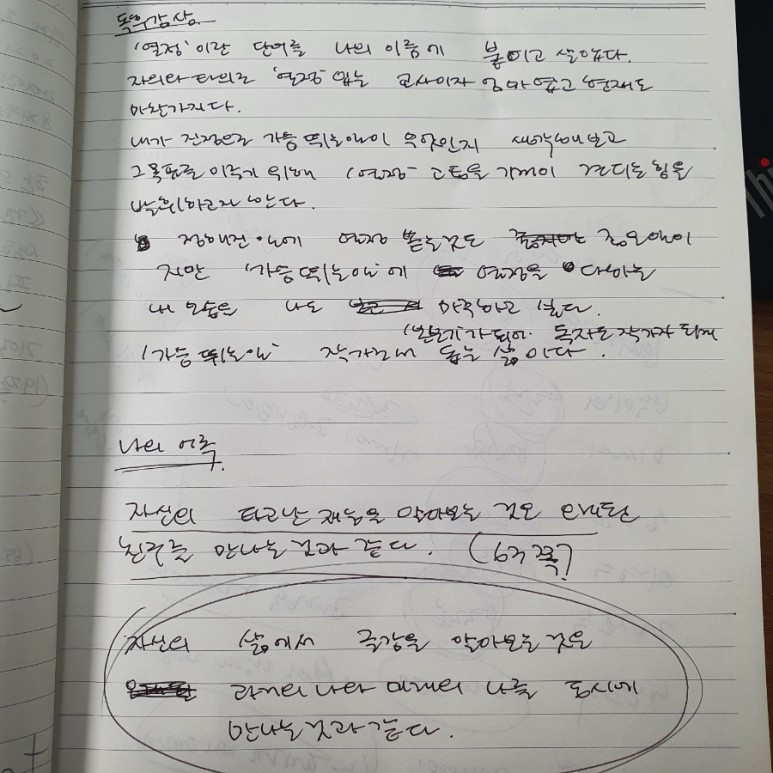 독후감상
'열정'이란 단어를 나의 이름에 붙이고 살았다.
자의와 타의로 '열정' 있는 교사이자 엄마였고 현재도
마찬가지다.
내가 진정으로 가슴 뛰는 일이 무엇인지 생각해보고
그 목표를 이루기 위해 '열정' 고통을 기꺼이 견디는 힘을
발휘하고자 한다.
정해진 일에 열정 쏟는 것도 중요한 일이
지만 '가슴 뛰는 일'에 열정을 다하는
내 모습을 나도 마주하고 싶다.
'가슴 뛰는 일' 작가로서 돕는 삶이다.
독자도 작가가 되게
나의 어록
자신의 타고난 재능을 알아보는 것은 오래된
친구를 만나는 것과 같다.
자신의 삶에서 글감을 알아보는 것은
과거의 나와 미래의 나를 동시에
만나는 것과 같다.